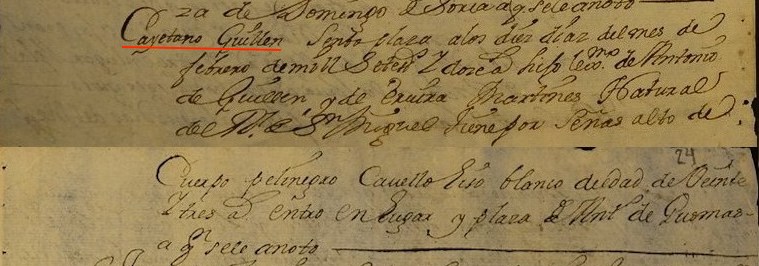 za de Domingo de Soria a qn se le anoto
Cayetano Guillen Sento plaza a los diez diaz del mes de
febrero de mill Setesz Y doze a hijo lexmo. de Antonio
de Guillen y de Martines Natural
del Rl. de Sn Miguel tiene por Señas alto de
24
Cuerpo pelinegro Cavello liso blanco de hedad de Veinte
Y tres a entro en lugar y plaza de Antto de Gusman
a qn se le anoto